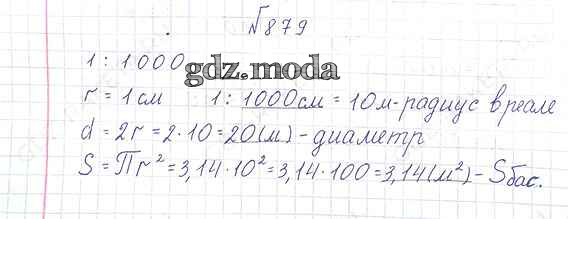 №879
1 : 1000
gdz.moda
r = 1 см 1 : 1000см = 10м-радиус в реале
d = 2r = 2·10=20(м) - диаметр
S = Пr² = 3,14·10² = 3,14·100=3,14(м²) - Sбас.